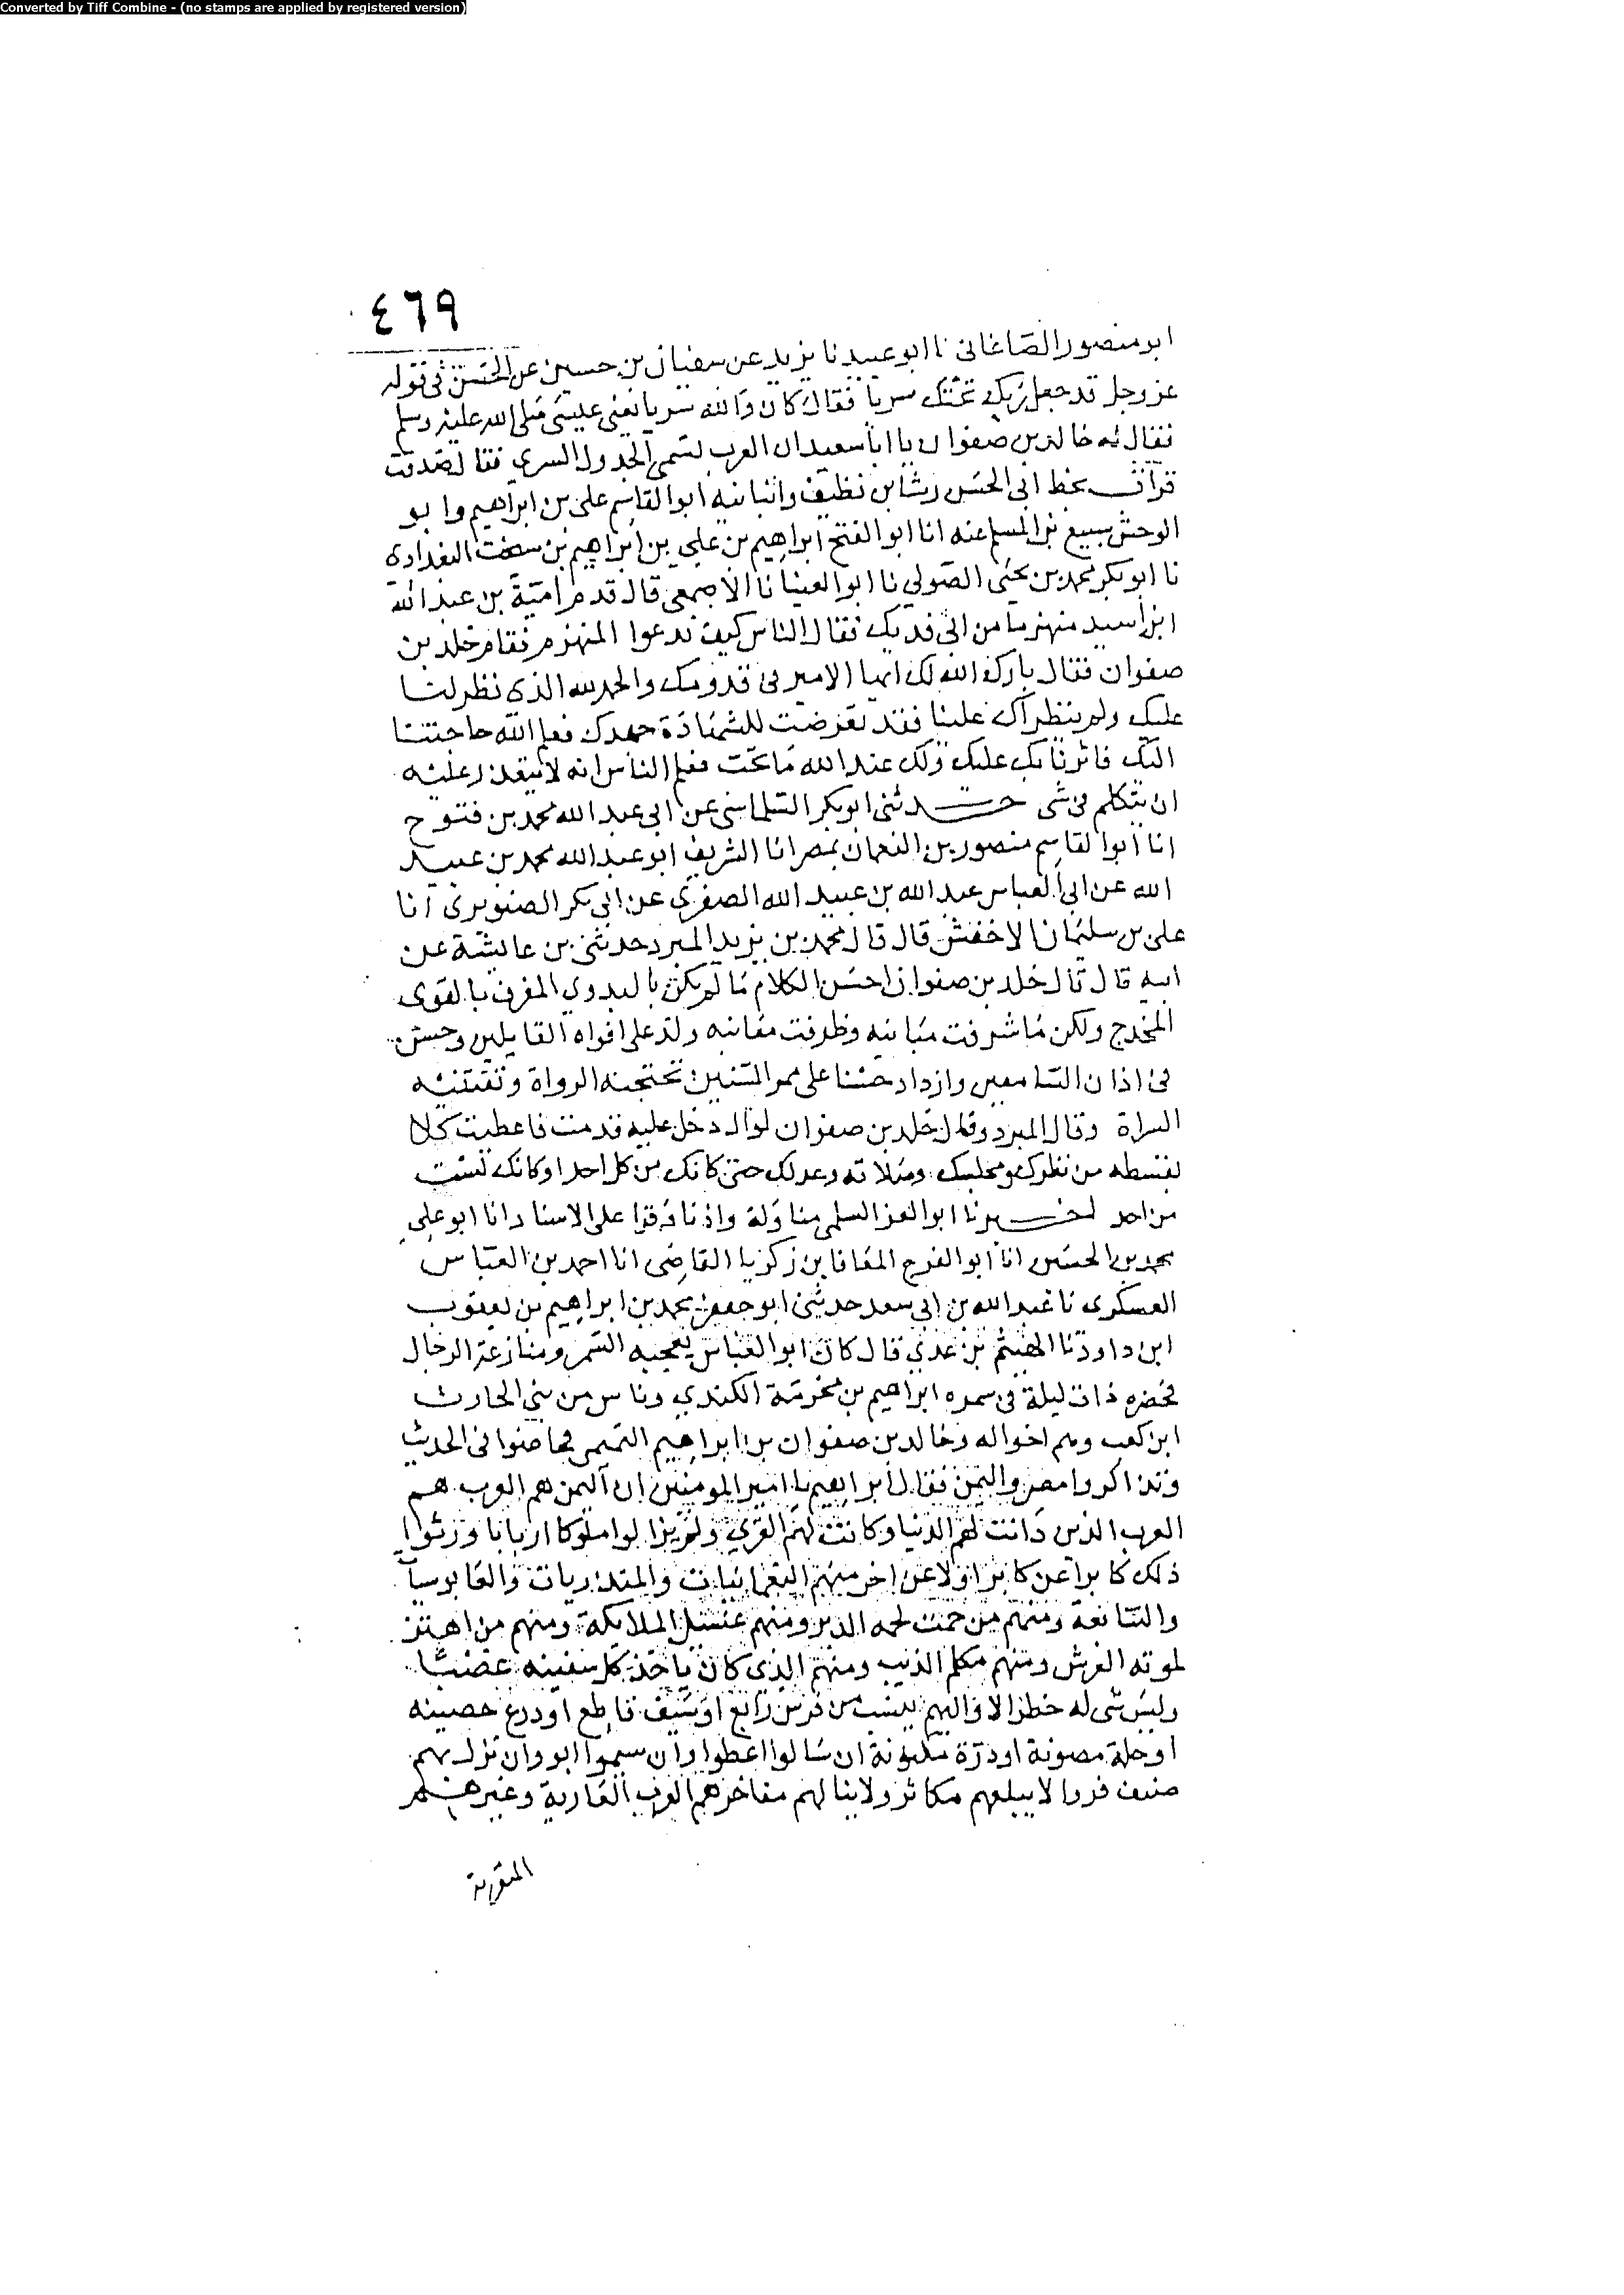 Converted by Tiff Combine - (no stamps are applied by registered version)
٤٦٩
ابو منصور الصاغانى نا ابو عبيد نا يزيد عن سفيان بن حسين عن الحسن فى قوله
عز وجل قد جعل ربك تحتك سريا فقال كان والله سريا يعنى عيسى صلى الله عليه وسلم
فقال له خالد بن صفوان يا ابا سعيد ان العرب تسمى الجدول السرى فقال صدقت
قرأت بخط ابى الحسن رشا بن نظيف وانبانيه ابو القاسم على بن ابراهيم وابو
الوحش سبيع بن المسلم عنه انا ابو الفتح ابراهيم بن على بن ابراهيم بن سيخت البغدادى
نا ابو بكر محمد بن يحيى الصولي نا ابو العينا نا الاصمعى قال قدم امية بن عبد الله
ابن اسيد منهزما من ابى فديك فقال الناس كيف ندعوا المنهزم فقام خلد بن
صفوان فقال بارك الله لك ايها الامير فى قدومك والحمد لله الذى نظر لنا
عليك ولم ينظر لك علينا فقد تعرضت للشهادة جهدك فعلم الله حاجتنا
اليك فاثرنا بك عليك ولك عند الله ما تحب فعلم الناس انه لا يتعذر عليه
ان يتكلم فى شى حدثنى ابو بكر السلماسى عن ابى عبد الله محمد بن فتوح
انا ابو القاسم منصور بن النعمان بمصر انا الشريف ابو عبد الله محمد بن عبيد
الله عن ابى العباس عبد الله بن عبيد الله الصفرى عن ابى بكر الصنوبرى انا
على بن سليمان الاخفش قال قال محمد بن يزيد المبرد حدثنى بن عائشة عن
ابيه قال قال خلد بن صفوان احسن الكلام ما لم يكن بالبدوي المغرف بالقوى
المخدج ولكن ما شرفت مبانيه وظرفت معانيه ولذ على افواه القايلين وحسن
فى اذان السامعين وازداد حسنا على ممر السنين تحتجنه الرواة وتقتنيه
السراة وقال المبرد وقال خلد بن صفوان لوال دخل عليه قدمت فاعطيت كلا
بقسطه من نظرك ومجلسك وصلاته وعدلك حتى كانك من كل احد او كانك لست
من احد اخبرنا ابو العز السلمى مناولة واذنا وقرا على الاسناد انا ابو على
محمد بن الحسين انا ابو الفرج المعافا بن زكريا القاضى انا احمد بن العباس
العسكرى نا عبد الله بن ابى سعد حدثنى ابو جعفر محمد بن ابراهيم بن يعقوب
ابن داود نا الهيثم بن عدي قال كان ابو العباس يعجبه السمر ومنازعة الرجال
فحضره ذات ليلة فى سمره ابراهيم بن مخرمة الكندي وناس من بني الحارث
ابن كعب وهم اخواله وخالد بن صفوان بن ابراهيم التميمى فخاضوا فى الحديث
وتذاكروا مضر واليمن فقال ابراهيم يا امير المومنين ان اليمن هم العرب هم
العرب الذين دانت لهم الدنيا وكانت لهم القرى ولم يزالوا ملوكا اربابا ورثوا
ذلك كابرا عن كابر اولا عن اخر منهم النعمانيات والمنذريات والقابوسيا
والتتابعة ومنهم من حمت لحمه الدبر ومنهم غسيل الملايكة ومنهم من اهتز
لموته العرش ومنهم مكلم الذيب ومنهم الذى كان ياخذ كل سفينه غضبا
وليس شى له خطر الا واليهم ينسب من فرس رابع او سيف قاطع او درع حصينه
او حلة مصونة او درة مكنونة ان سالوا اعطوا وان سيموا ابو وان نزل بهم
ضيف قروا لا يبلغهم مكاثر ولا ينالهم مفاخر هم العرب العاربة وغيرهم
المتعربة